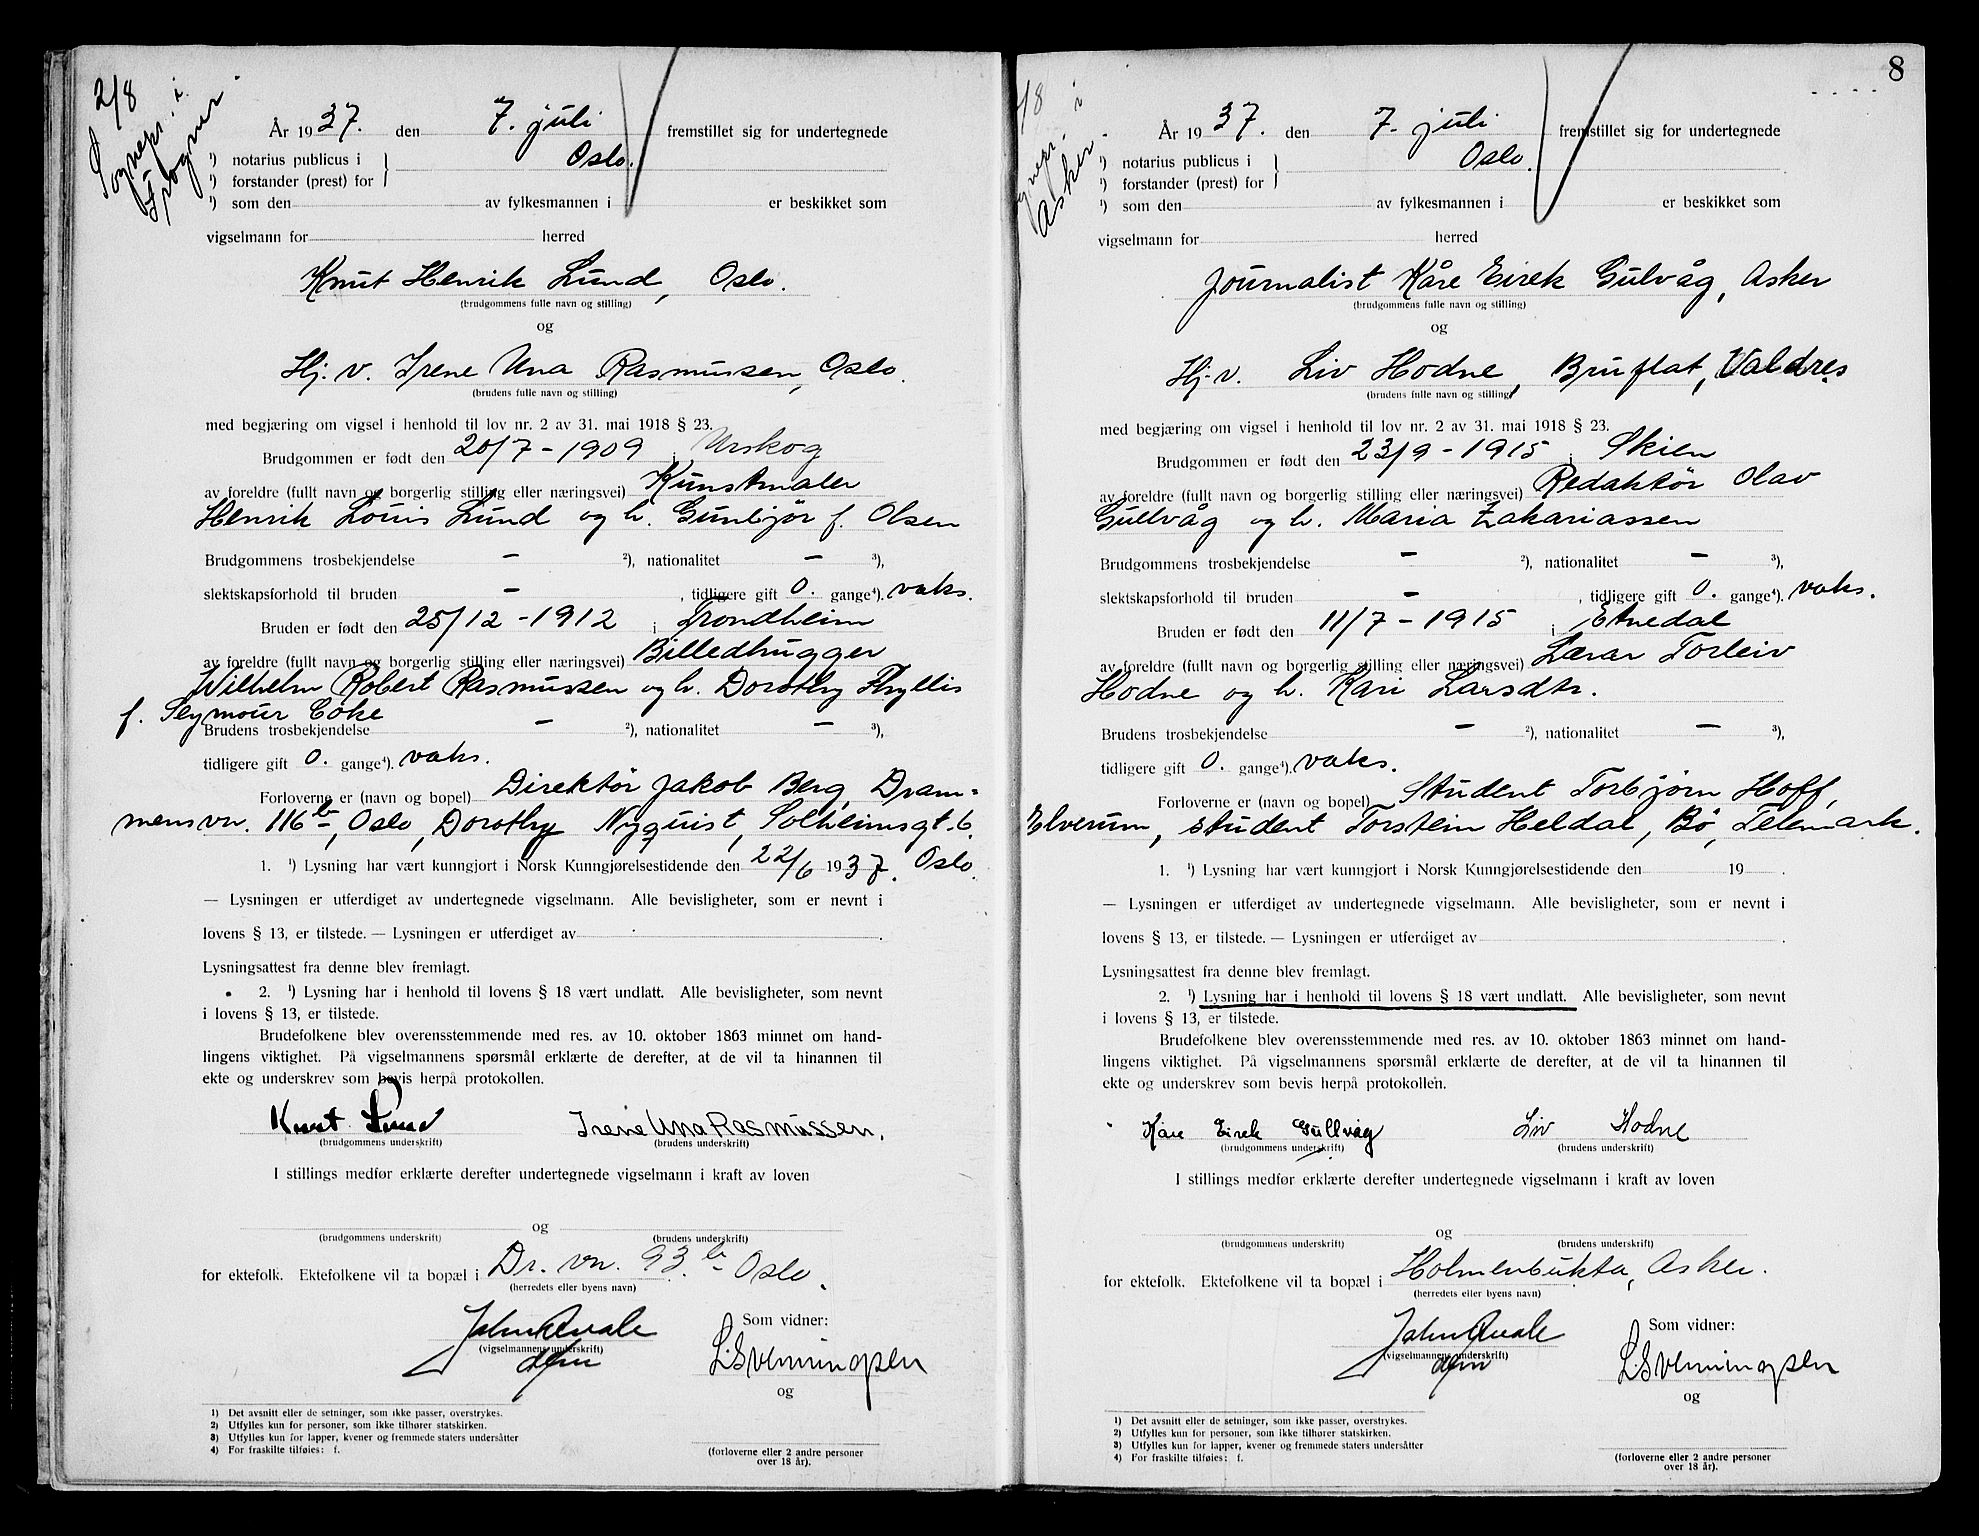 2/8
Sognepr. i
Frogner.
År 1937. den 7. juli fremstillet sig for undertegnede
¹) notarius publicus i Oslo.
¹) forstander (prest) for
¹) som den av fylkesmannen i er beskikket som
vigselmann for herred
Knut Henrik Lund, Oslo.
(brudgommens fulle navn og stilling)
og
Hj. v. Irene Una Rasmussen, Oslo.
(brudens fulle navn og stilling)
med begjæring om vigsel i henhold til lov nr. 2 av 31. mai 1918 § 23.
Brudgommen er født den 20/7 - 1909 i Urskog
av foreldre (fullt navn og borgerlig stilling eller næringsvei) Kunstmaler
Henrik Louis Lund og h. Gunbjør f. Olsen
Brudgommens trosbekjendelse - ²), nationalitet - ³),
slektskapsforhold til bruden - , tidligere gift 0. gange⁴). vaks.
Bruden er født den 25/12 - 1912 i Trondheim
av foreldre (fullt navn og borgerlig stilling eller næringsvei) Billedhugger
Wilhelm Robert Rasmussen og h. Dorothy Phyllis
f. Seymour Coke
Brudens trosbekjendelse - ²), nationalitet - ³),
tidligere gift 0. gange⁴). vaks.
Forloverne er (navn og bopel) Direktør Jakob Berg, Dram-
mensvn. 116b, Oslo, Dorothy Nyquist, Solheimsgt. 6
1. ¹) Lysning har vært kunngjort i Norsk Kunngjørelsestidende den 22/6 1937. Oslo.
— Lysningen er utferdiget av undertegnede vigselmann. Alle bevisligheter, som er nevnt i
lovens § 13, er tilstede. — Lysningen er utferdiget av .
Lysningsattest fra denne blev fremlagt.
2. ¹) Lysning har i henhold til lovens § 18 vært undlatt. Alle bevisligheter, som nevnt
i lovens § 13, er tilstede.
Brudefolkene blev overensstemmende med res. av 10. oktober 1863 minnet om hand-
lingens viktighet. På vigselmannens spørsmål erklærte de derefter, at de vil ta hinannen til
ekte og underskrev som bevis herpå protokollen.
Knut Lund Irene Una Rasmussen.
(brudgommens underskrift) (brudens underskrift)
I stillings medfør erklærte derefter undertegnede vigselmann i kraft av loven
og
(brudgommens underskrift) (brudens underskrift)
for ektefolk. Ektefolkene vil ta bopæl i Dr. vn. 93b Oslo.
(herredets eller byens navn)
Som vidner:
(vigselmannens underskrift)
L. Svenningsen
og
1) Det avsnitt eller de setninger, som ikke passer, overstrykes.
2) Utfylles kun for personer, som ikke tilhører statskirken.
3) Utfylles kun for lapper, kvener og fremmede staters undersåtter
4) For fraskilte tilføies: f.
(forloverne eller 2 andre personer
over 18 år).
8
/8
i
Asker.
År 1937. den 7. juli fremstillet sig for undertegnede
¹) notarius publicus i Oslo.
¹) forstander (prest) for
¹) som den av fylkesmannen i er beskikket som
vigselmann for herred
Journalist Kåre Eirek Gulvåg, Asker
(brudgommens fulle navn og stilling)
og
Hj. v. Liv Hodne, Bruflat, Valdres
(brudens fulle navn og stilling)
med begjæring om vigsel i henhold til lov nr. 2 av 31. mai 1918 § 23.
Brudgommen er født den 23/9 - 1915 i Skien
av foreldre (fullt navn og borgerlig stilling eller næringsvei) Redaktør Olav
Gullvåg og h. Maria Zakariassen
Brudgommens trosbekjendelse - ²), nationalitet - ³),
slektskapsforhold til bruden - , tidligere gift 0. gange⁴). vaks.
Bruden er født den 11/7 - 1915 i Etnedal
av foreldre (fullt navn og borgerlig stilling eller næringsvei) Lærar Torleiv
Hodne og h. Kari Larsdtr.
Brudens trosbekjendelse - ²), nationalitet - ³),
tidligere gift 0. gange⁴). vaks.
Forloverne er (navn og bopel) Student Torbjørn Hoff,
Elverum, student Torstein Heldal, Bø, Telemark.
1. ¹) Lysning har vært kunngjort i Norsk Kunngjørelsestidende den 19 .
— Lysningen er utferdiget av undertegnede vigselmann. Alle bevisligheter, som er nevnt i
lovens § 13, er tilstede. — Lysningen er utferdiget av .
Lysningsattest fra denne blev fremlagt.
2. ¹) Lysning har i henhold til lovens § 18 vært undlatt. Alle bevisligheter, som nevnt
i lovens § 13, er tilstede.
Brudefolkene blev overensstemmende med res. av 10. oktober 1863 minnet om hand-
lingens viktighet. På vigselmannens spørsmål erklærte de derefter, at de vil ta hinannen til
ekte og underskrev som bevis herpå protokollen.
Kåre Eirek Gullvåg Liv Hodne
(brudgommens underskrift) (brudens underskrift)
I stillings medfør erklærte derefter undertegnede vigselmann i kraft av loven
og
(brudgommens underskrift) (brudens underskrift)
for ektefolk. Ektefolkene vil ta bopæl i Holmenbukta, Asker.
(herredets eller byens navn)
Som vidner:
(vigselmannens underskrift)
L. Svenningsen
og
1) Det avsnitt eller de setninger, som ikke passer, overstrykes.
2) Utfylles kun for personer, som ikke tilhører statskirken.
3) Utfylles kun for lapper, kvener og fremmede staters undersåtter
4) For fraskilte tilføies: f.
(forloverne eller 2 andre personer
over 18 år).